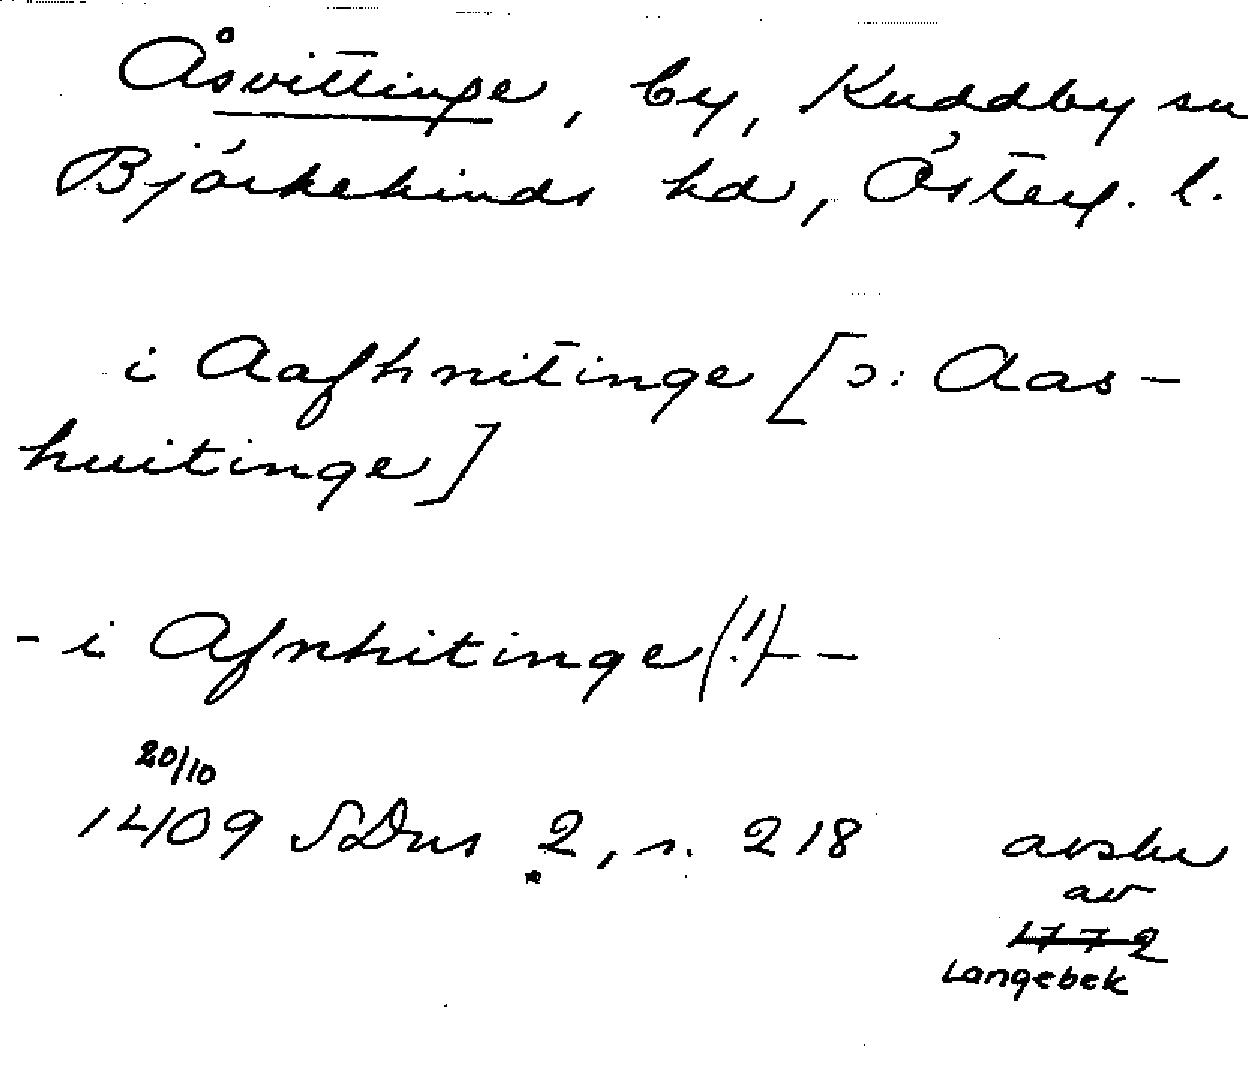 Åsvittinge, by, Kuddby sn
Björkekinds hd, Österg. l.
i Aafhnitinge [ɔ: Aas-
huitinge]
- i Afnhitinge(!) -
20/10
1409 SDns 2, s. 218
avskr
av
1772
Langebek